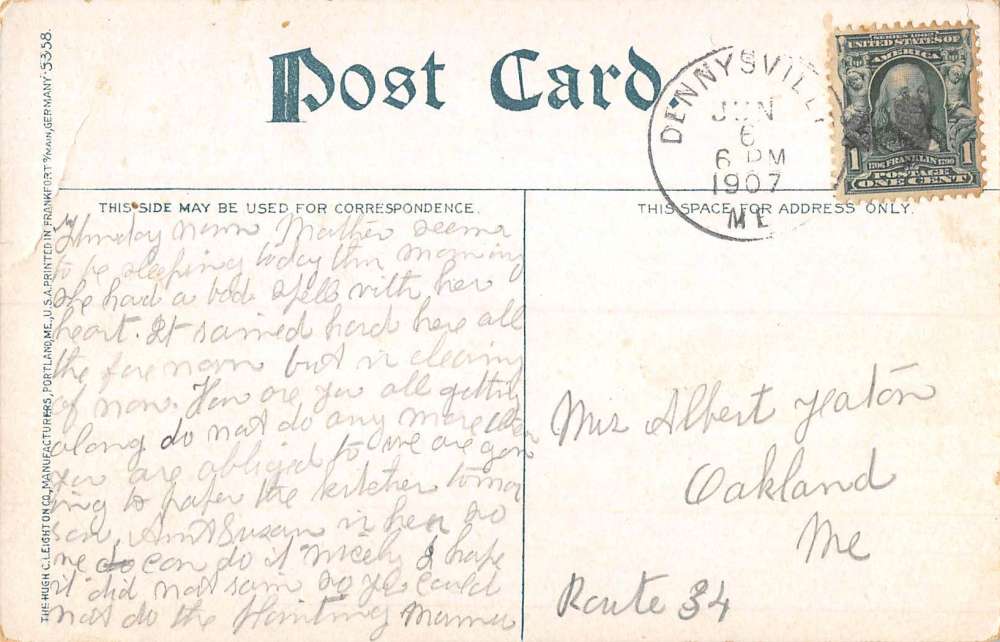 Post Card
DENNYSVILLE
JUN
6
6 PM
1907
ME
SERIES 1902
UNITED STATES OF
AMERICA
1 1
1706 FRANKLIN 1790
POSTAGE
ONE CENT
THIS SIDE MAY BE USED FOR CORRESPONDENCE.
THIS SPACE FOR ADDRESS ONLY.
THE HUGH C. LEIGHTON CO., MANUFACTURERS, PORTLAND, ME., U.S.A. PRINTED IN FRANKFORT º/MAIN, GERMANY. 5358.
Thursday noon Mother seems
to be sleeping today this morning
she had a bad spell with her
heart. It rained hard here all
the fore noon but is clearing
of now. How are you all getting
along do not do any more then
you are obliged to we are gon
ing to paper the kitchen tomor
row, Aunt Susan is here so
we can do it nicely I hope
it did not rain so you could
not do the Mamma
Mrs Albert Yeaton
Oakland
Me
Route 34